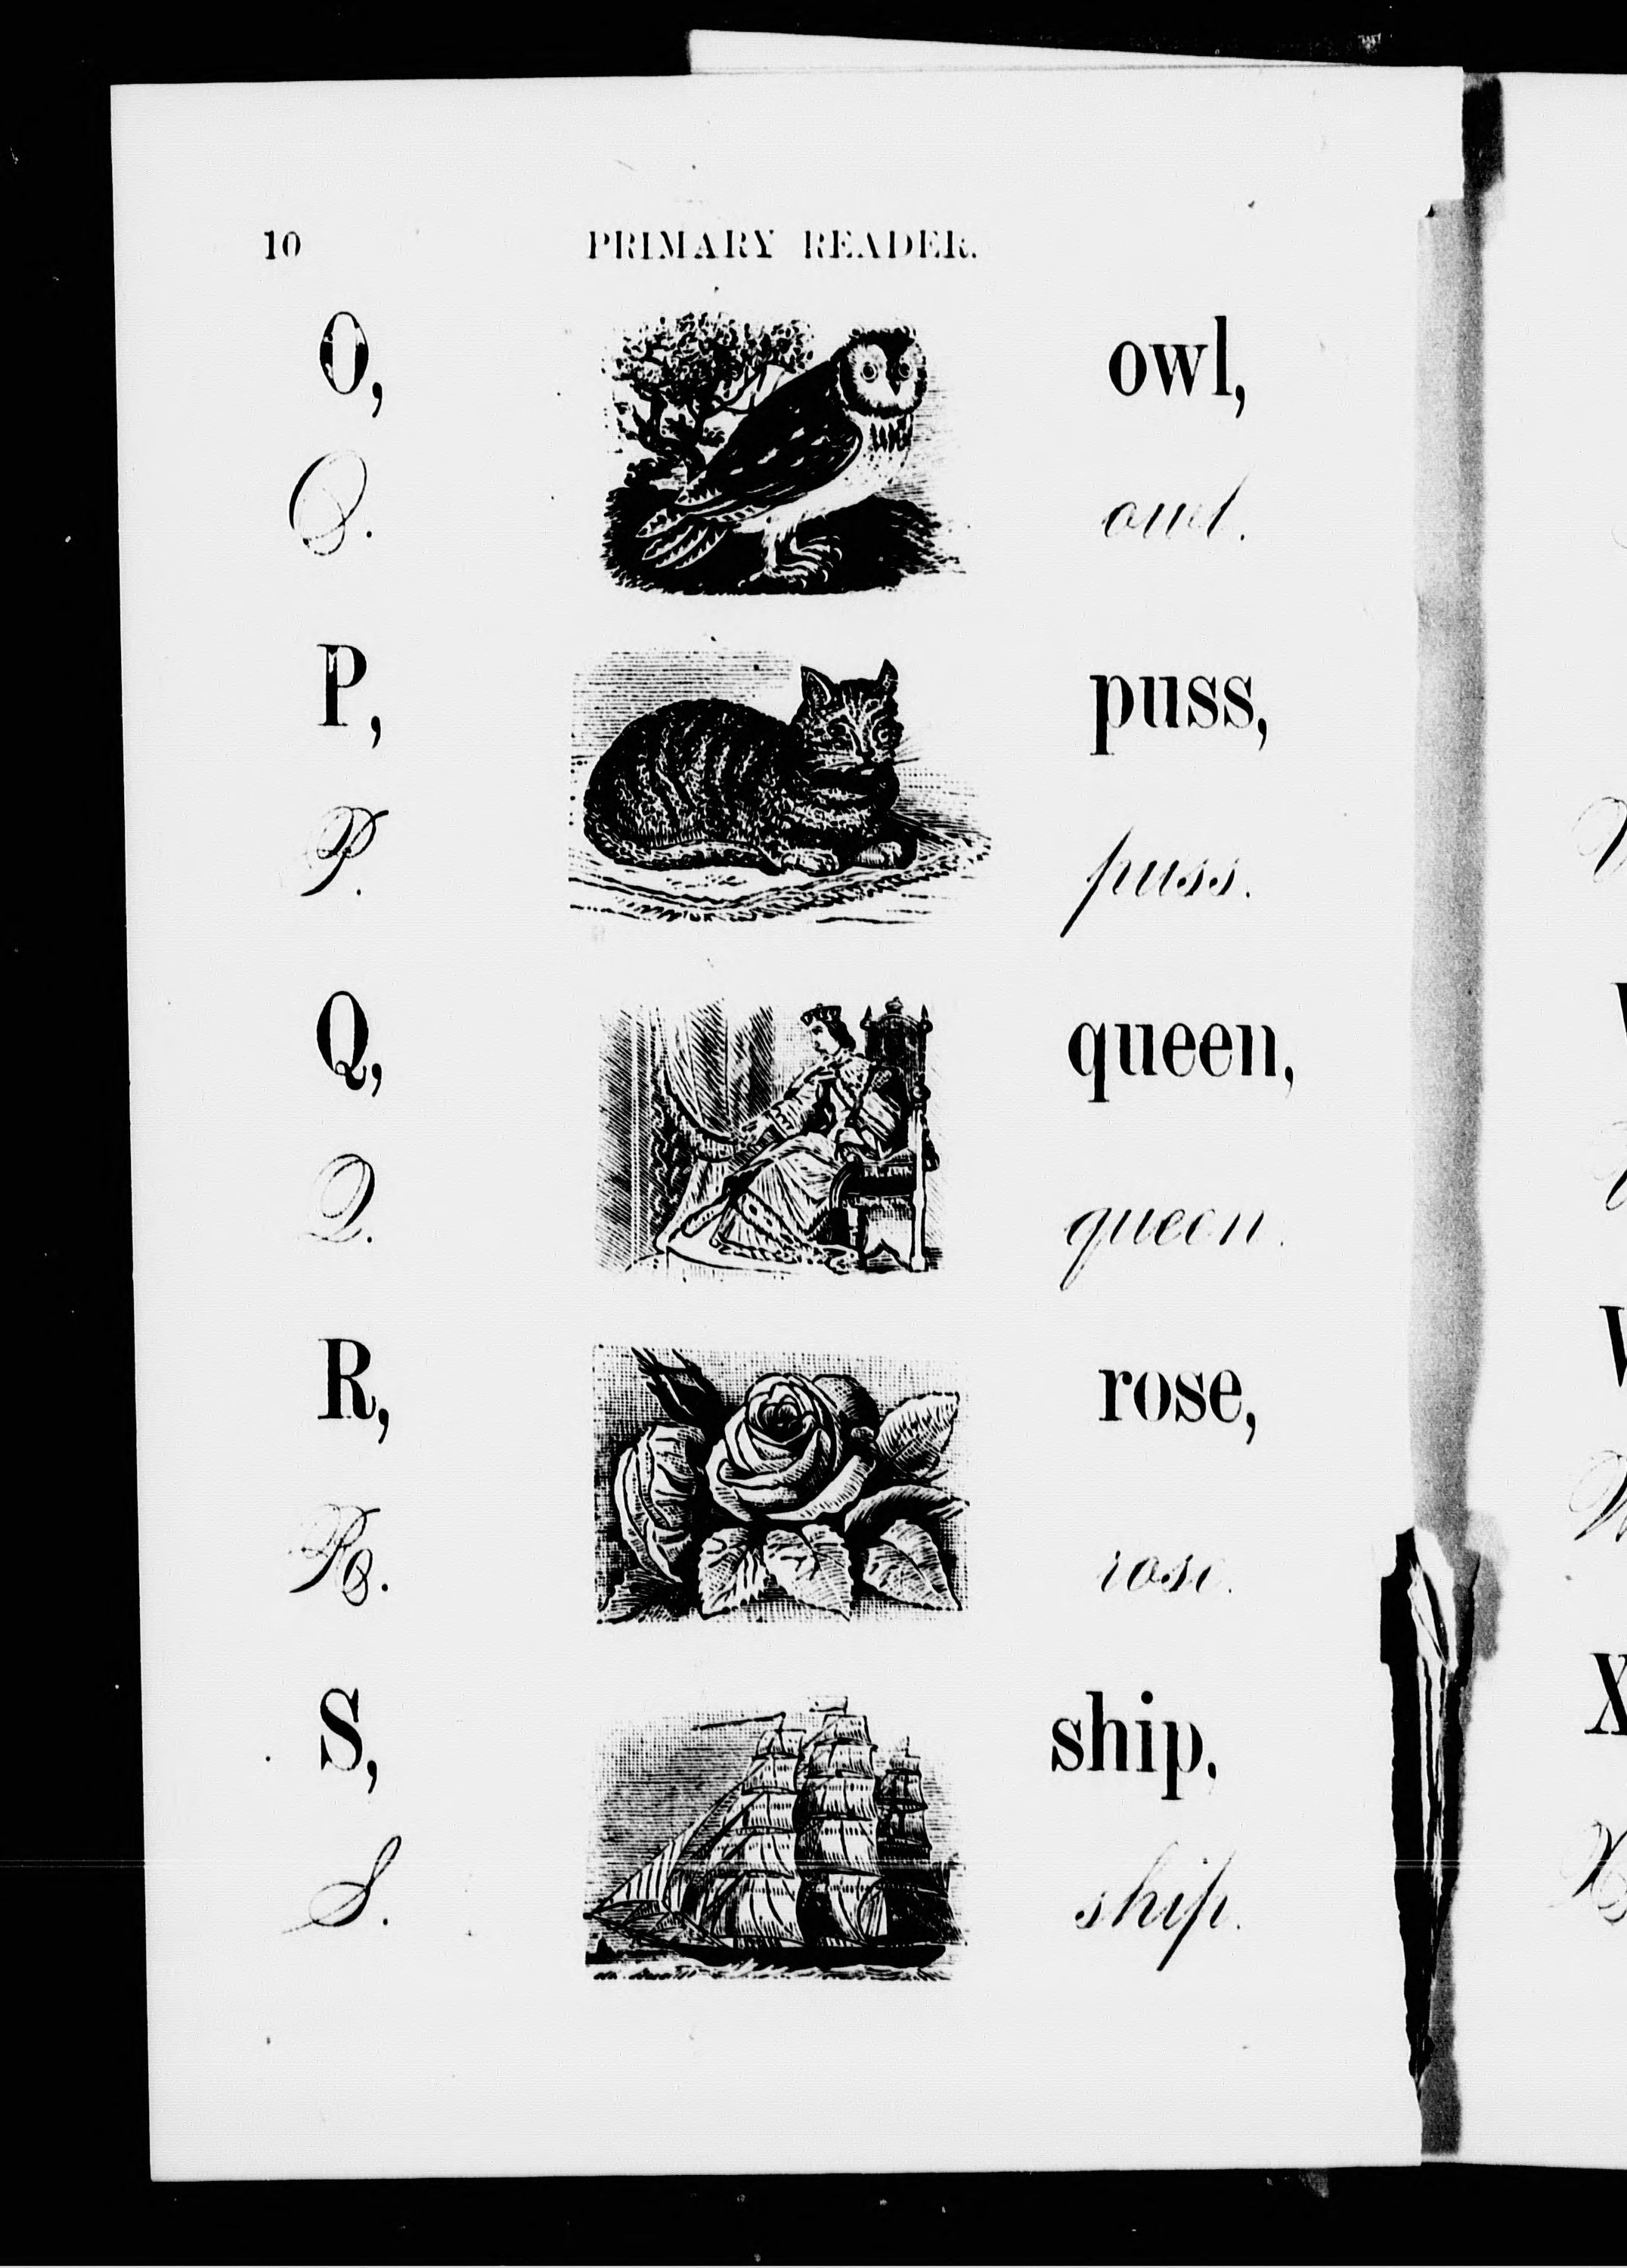 10 PRIMARY READER.
O, owl,
O. owl.
P, puss,
P. puss.
Q, queen,
Q. queen.
R, rose,
R. rose.
S, ship,
S. ship.
X